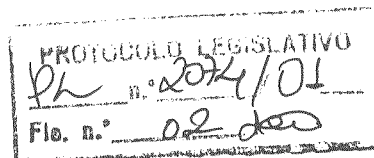 PROTOCOLO LEGISLATIVO
PL n.º 2074/01
Fls. n.º 02